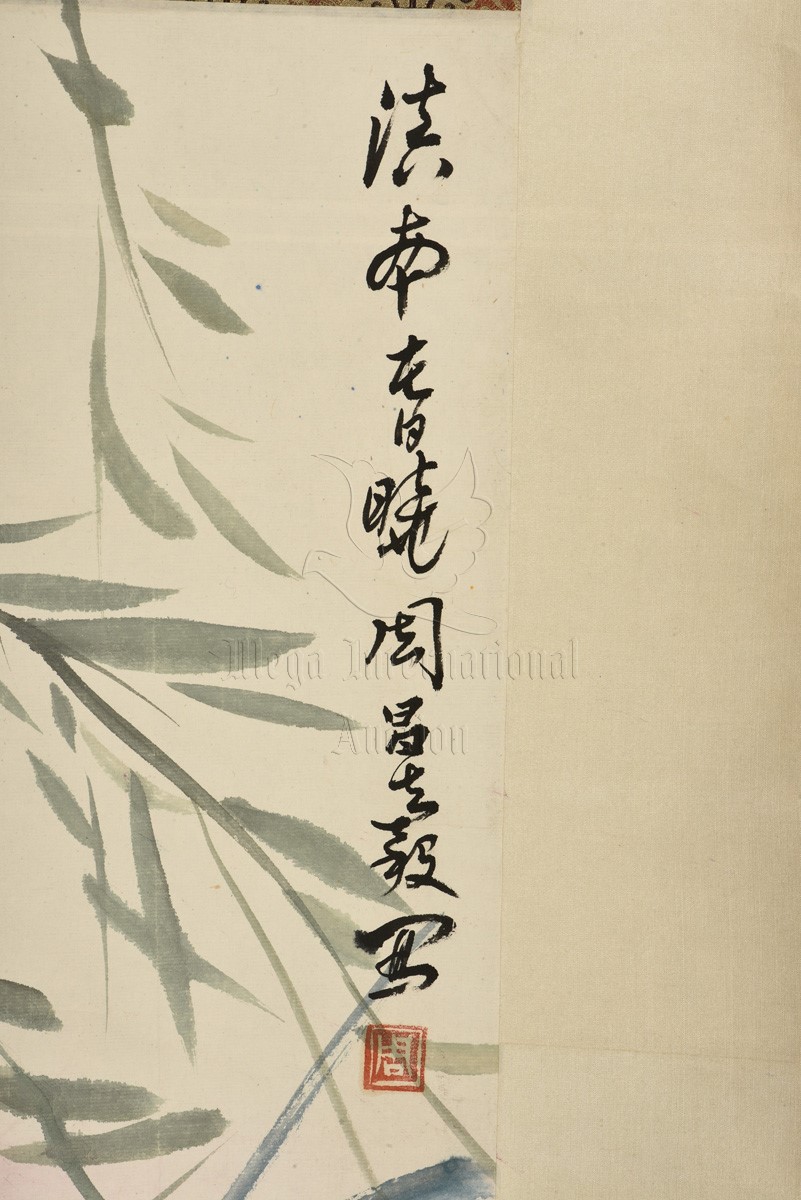 滇南春曉周昌穀寫
周
Mega International
Auction